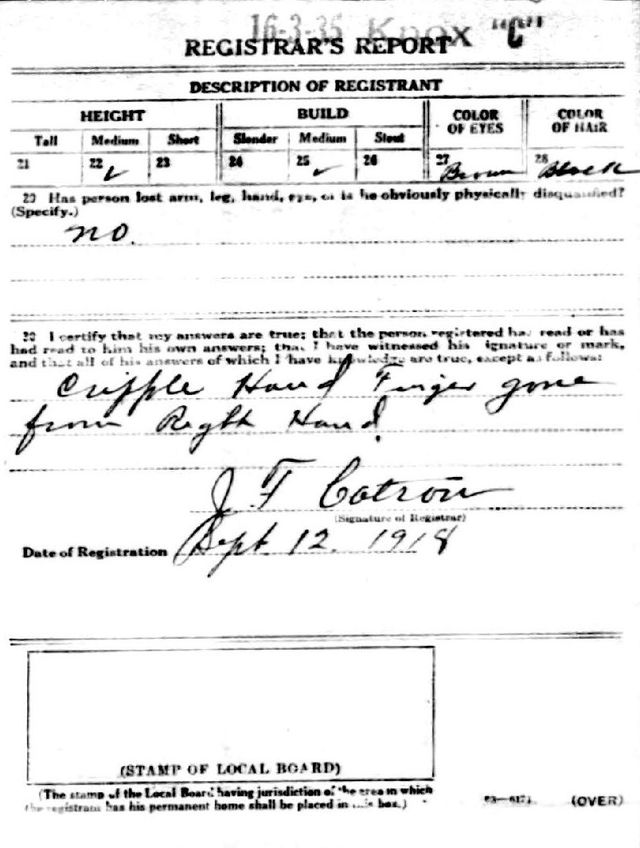 16-3-35 Knox "C"
REGISTRAR'S REPORT
DESCRIPTION OF REGISTRANT
HEIGHT BUILD COLOR OF EYES COLOR OF HAIR
Tall Medium Short Slender Medium Stout
21 22 ✓ 23 24 25 ✓ 26 27 Brown 28 Black
29 Has person lost arm, leg, hand, eye, or is he obviously physically disqualified?
(Specify.)
no.
30 I certify that my answers are true; that the person registered has read or has
had read to him his own answers; that I have witnessed his signature or mark,
and that all of his answers of which I have knowledge are true, except as follows:
Cripple Hand Finger gone
from Reght Hand.
J F Catron
(Signature of Registrar)
Date of Registration Sept. 12. 1918
(STAMP OF LOCAL BOARD)
(The stamp of the Local Board having jurisdiction of the area in which
the registrant has his permanent home shall be placed in this box.)
(OVER)